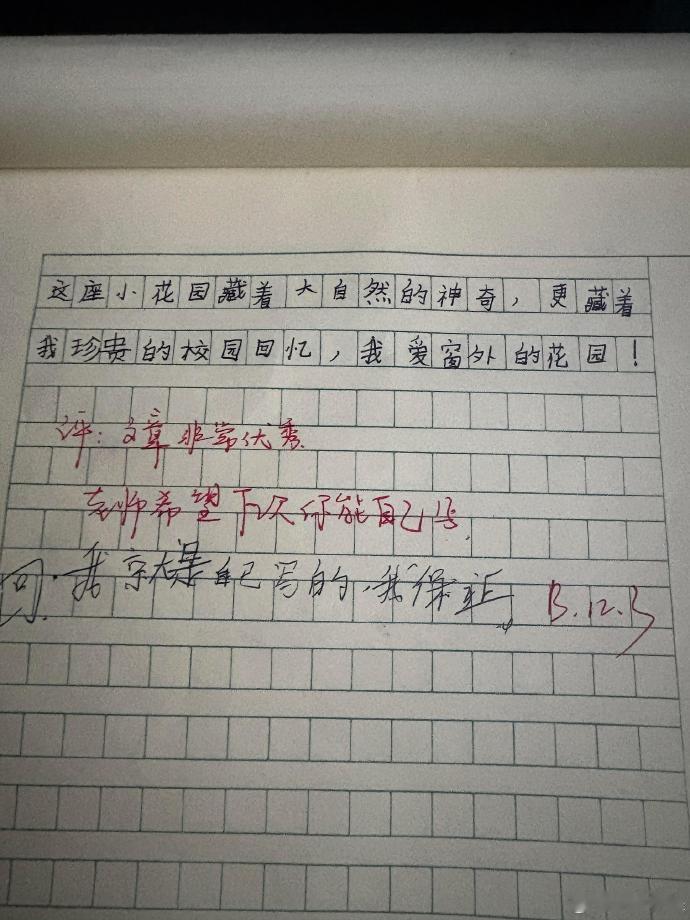 这座小花园藏着大自然的神奇，更藏着
我珍贵的校园回忆，我爱窗外的花园！
评：文章非常优秀。
老师希望下次你能自己写。
回：我就是自己写的，我保证。 B.12.3